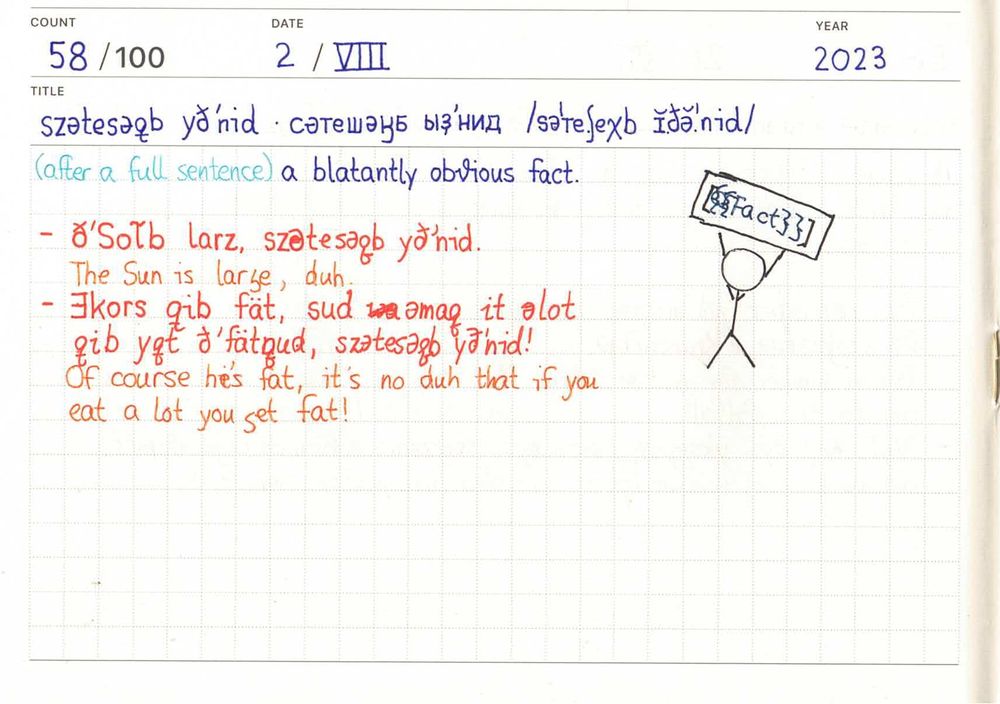 COUNT DATE YEAR
58 /100 2 / VIII 2023
TITLE
szətesəqb yð'nid · сәтешәӈБ ыҙ'нид /səˈteʃeχb ɪ̆ðə̆ˈ.nid/
(after a full sentence) a blatantly obvious fact.
Fact}}]
- ð'Solb larz, szətesəqb yð'nid.
The Sun is large, duh.
- Ǝkors qib fät, sud əmaq it əlot
qib yqt ð'fätqud, szətesəqb yð'nid!
Of course he's fat, it's no duh that if you
eat a lot you get fat!